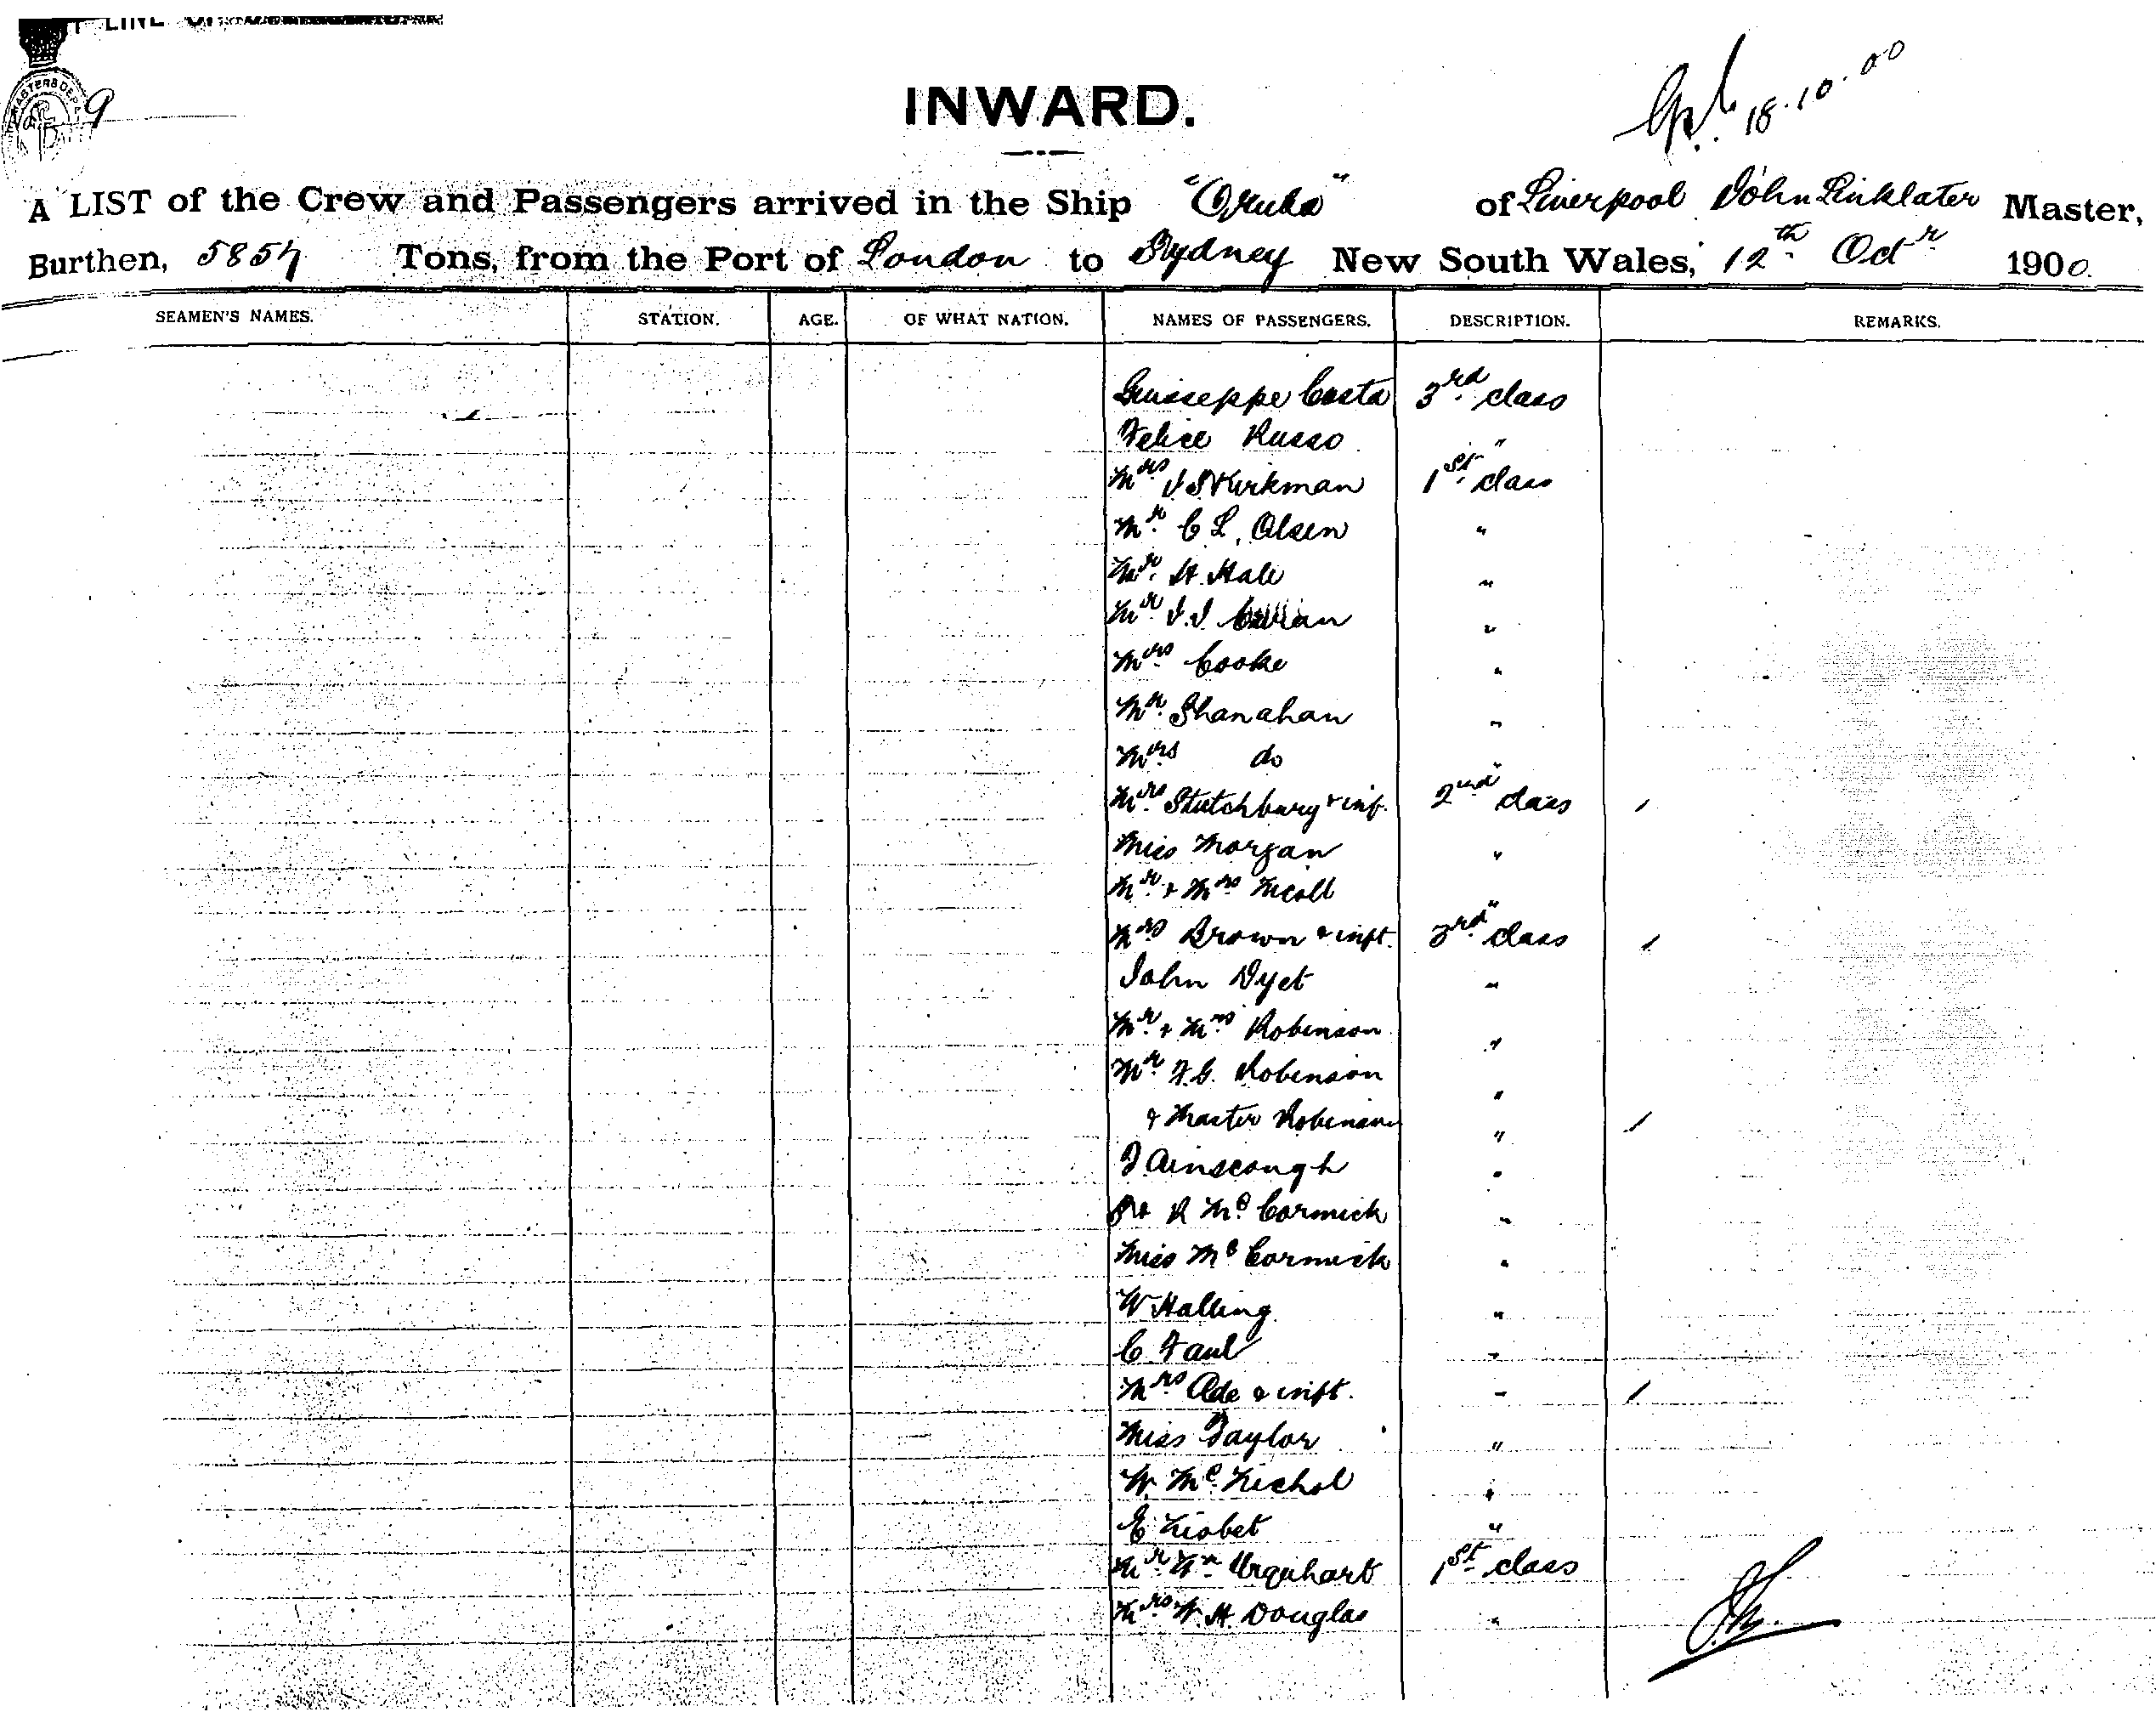 9
INWARD.
18.10.00
A LIST of the Crew and Passengers arrived in the Ship "Oruba" of Liverpool John Linklater Master,
Burthen, 5857 Tons, from the Port of London to Sydney New South Wales, 12th Octr 1900.
SEAMEN'S NAMES. STATION. AGE. OF WHAT NATION. NAMES OF PASSENGERS. DESCRIPTION. REMARKS.
Guisseppe Costa 3rd class
Felice Russo "
Mrs J S Kirkman 1st class
Mr C L. Olsen "
Mr H. Hale "
Mr J. J. "
Mrs Cooke "
Mr Shanahan "
Mrs do "
Mrs Stutchbury & inf. 2nd class /
Miss Morgan "
Mr & Mrs Nicoll "
Mrs Brown & inft. 3rd class /
John Dyet "
Mr & Mrs Robinson "
Mr F.G. Robinson "
& Master Robinson " /
J Ainscough "
R Mc Cormick "
Miss Mc Cormick "
W Halling "
C. Faul "
Mrs Ade & inft. " /
Miss Taylor "
W. Mc Nichol "
E Nisbet "
Mr Wm Urquhart 1st class
Mrs W. H. Douglas "